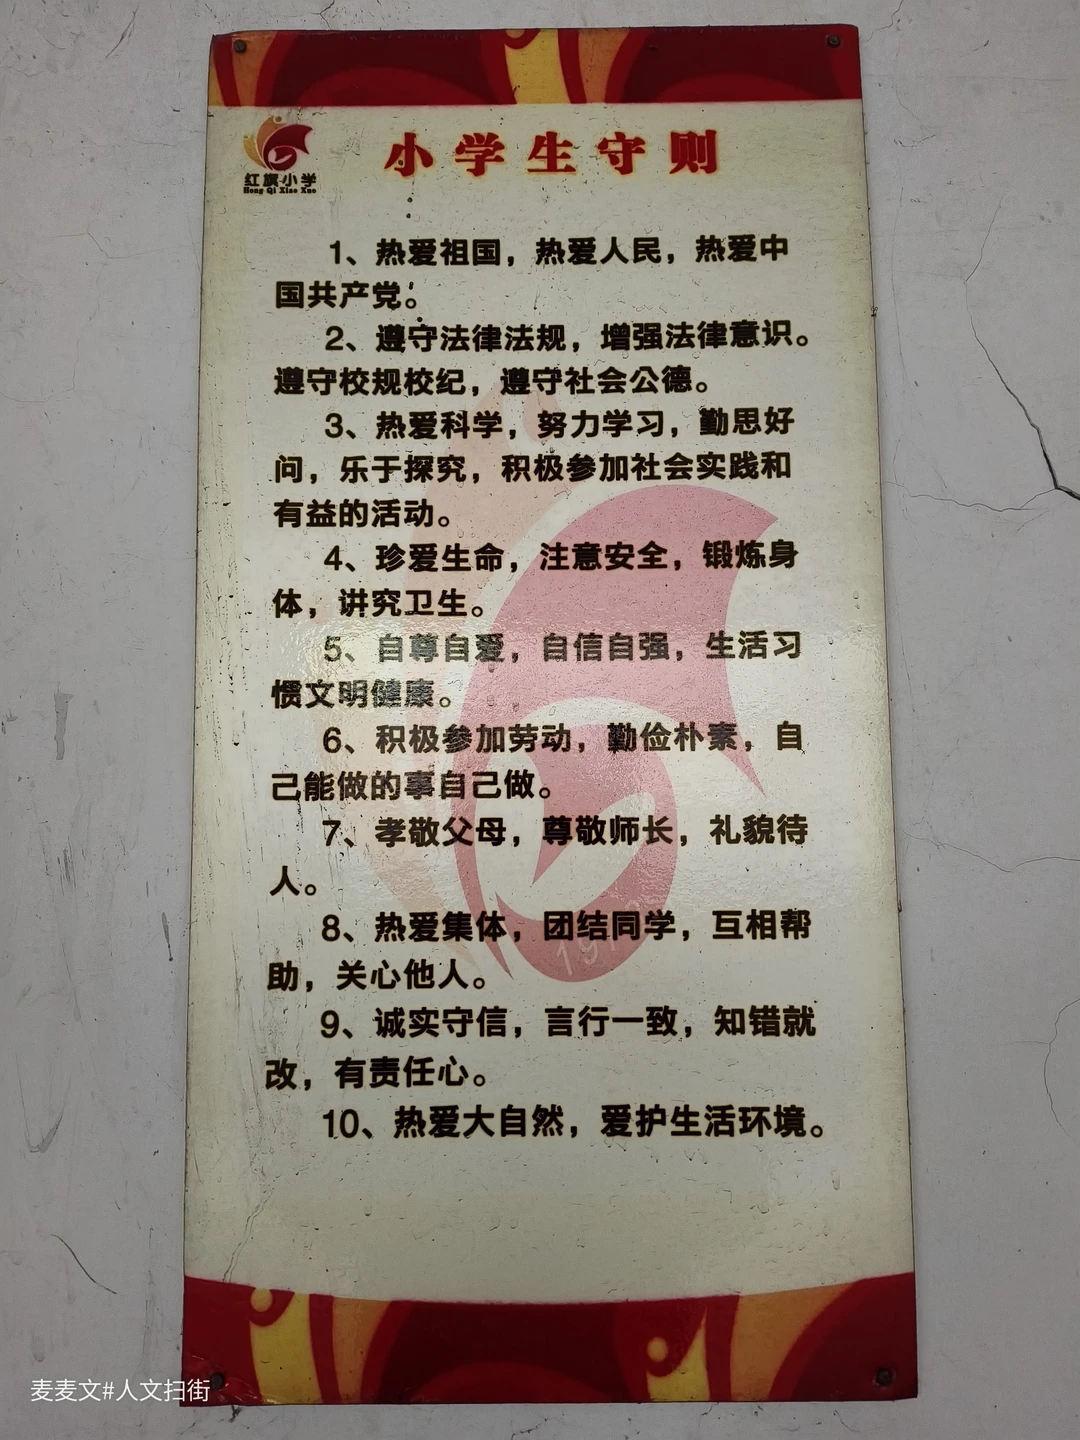 红旗小学
Hong Qi Xiao Xue
小学生守则
1、热爱祖国，热爱人民，热爱中
国共产党。
2、遵守法律法规，增强法律意识。
遵守校规校纪，遵守社会公德。
3、热爱科学，努力学习，勤思好
问，乐于探究，积极参加社会实践和
有益的活动。
4、珍爱生命，注意安全，锻炼身
体，讲究卫生。
5、自尊自爱，自信自强，生活习
惯文明健康。
6、积极参加劳动，勤俭朴素，自
己能做的事自己做。
7、孝敬父母，尊敬师长，礼貌待
人。
8、热爱集体，团结同学，互相帮
助，关心他人。
9、诚实守信，言行一致，知错就
改，有责任心。
10、热爱大自然，爱护生活环境。
麦麦文#人文扫街